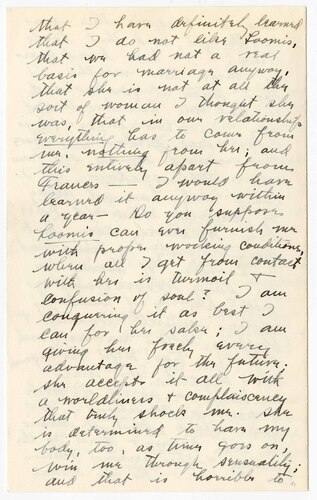 that I have definitely learned
that I do not like Loomis,
that we had not a real
basis for marriage anyway,
that she is not at all the
sort of woman I thought she
was, that in our relationship
everything has to come from
me, nothing from her; and
this entirely apart from
Frances — I would have
learned it anyway within
a year — Do you suppose
Loomis can ever furnish me
with proper working conditions,
when all I get from contact
with her is turmoil &
confusion of soul? I am
conquering it as best I
can for her sake; I am
giving her freely every
advantage for the future;
she accepts it all with
a worldliness & complaiscency
that truly shock me. She
is determined to have my
body, too, as time goes on,
win me through sensuality;
and that is horrible to